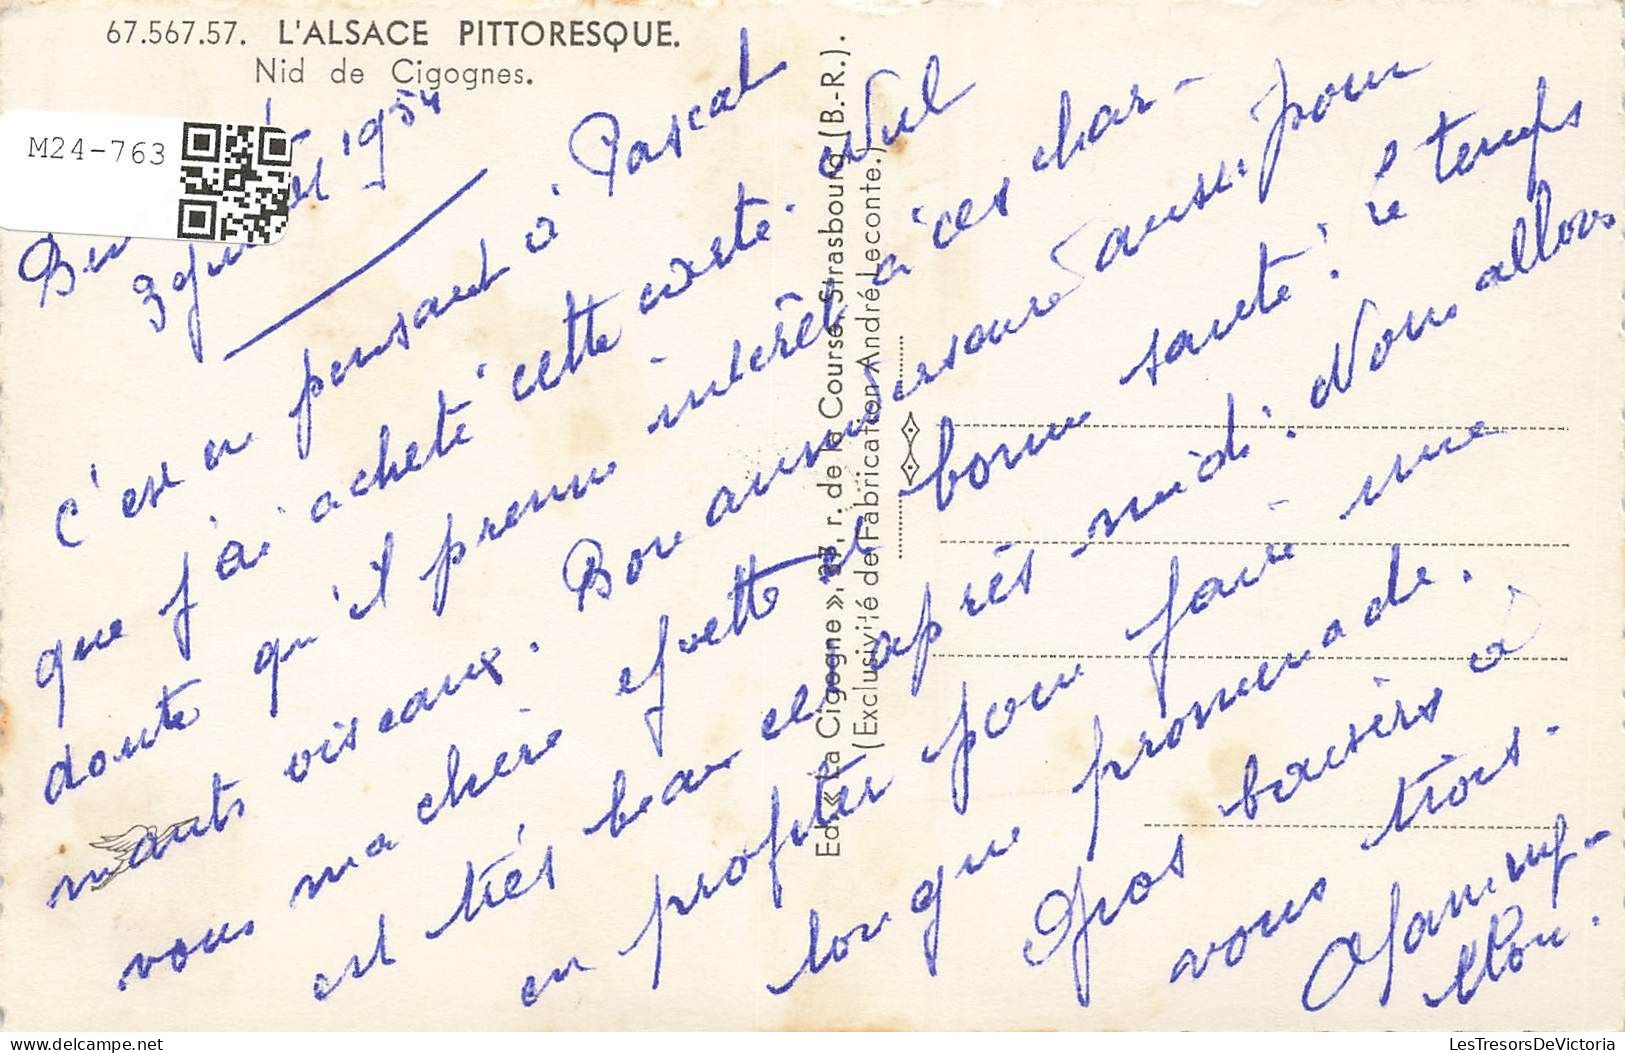 67.567.57. L'ALSACE PITTORESQUE.
Nid de Cigognes.
M24-763
1954
c'est en pensant à Pascal
que j'ai acheté cette carte. Nul
doute qu'il prenne intérêt à ces char-
mants oiseaux. Bon anniversaire aussi pour
vous ma chérie Yvette et bonne santé. le temps
est très beau cet après-midi. Nous allons
en profiter pour faire une
longue promenade.
Gros baisers à
vous trois.
Edit. « La Cigogne », 37, r. de la Course, Strasbourg (B.-R.).
(Exclusivité de Fabrication André Leconte.)
delcampe.net
LesTresorsDeVictoria